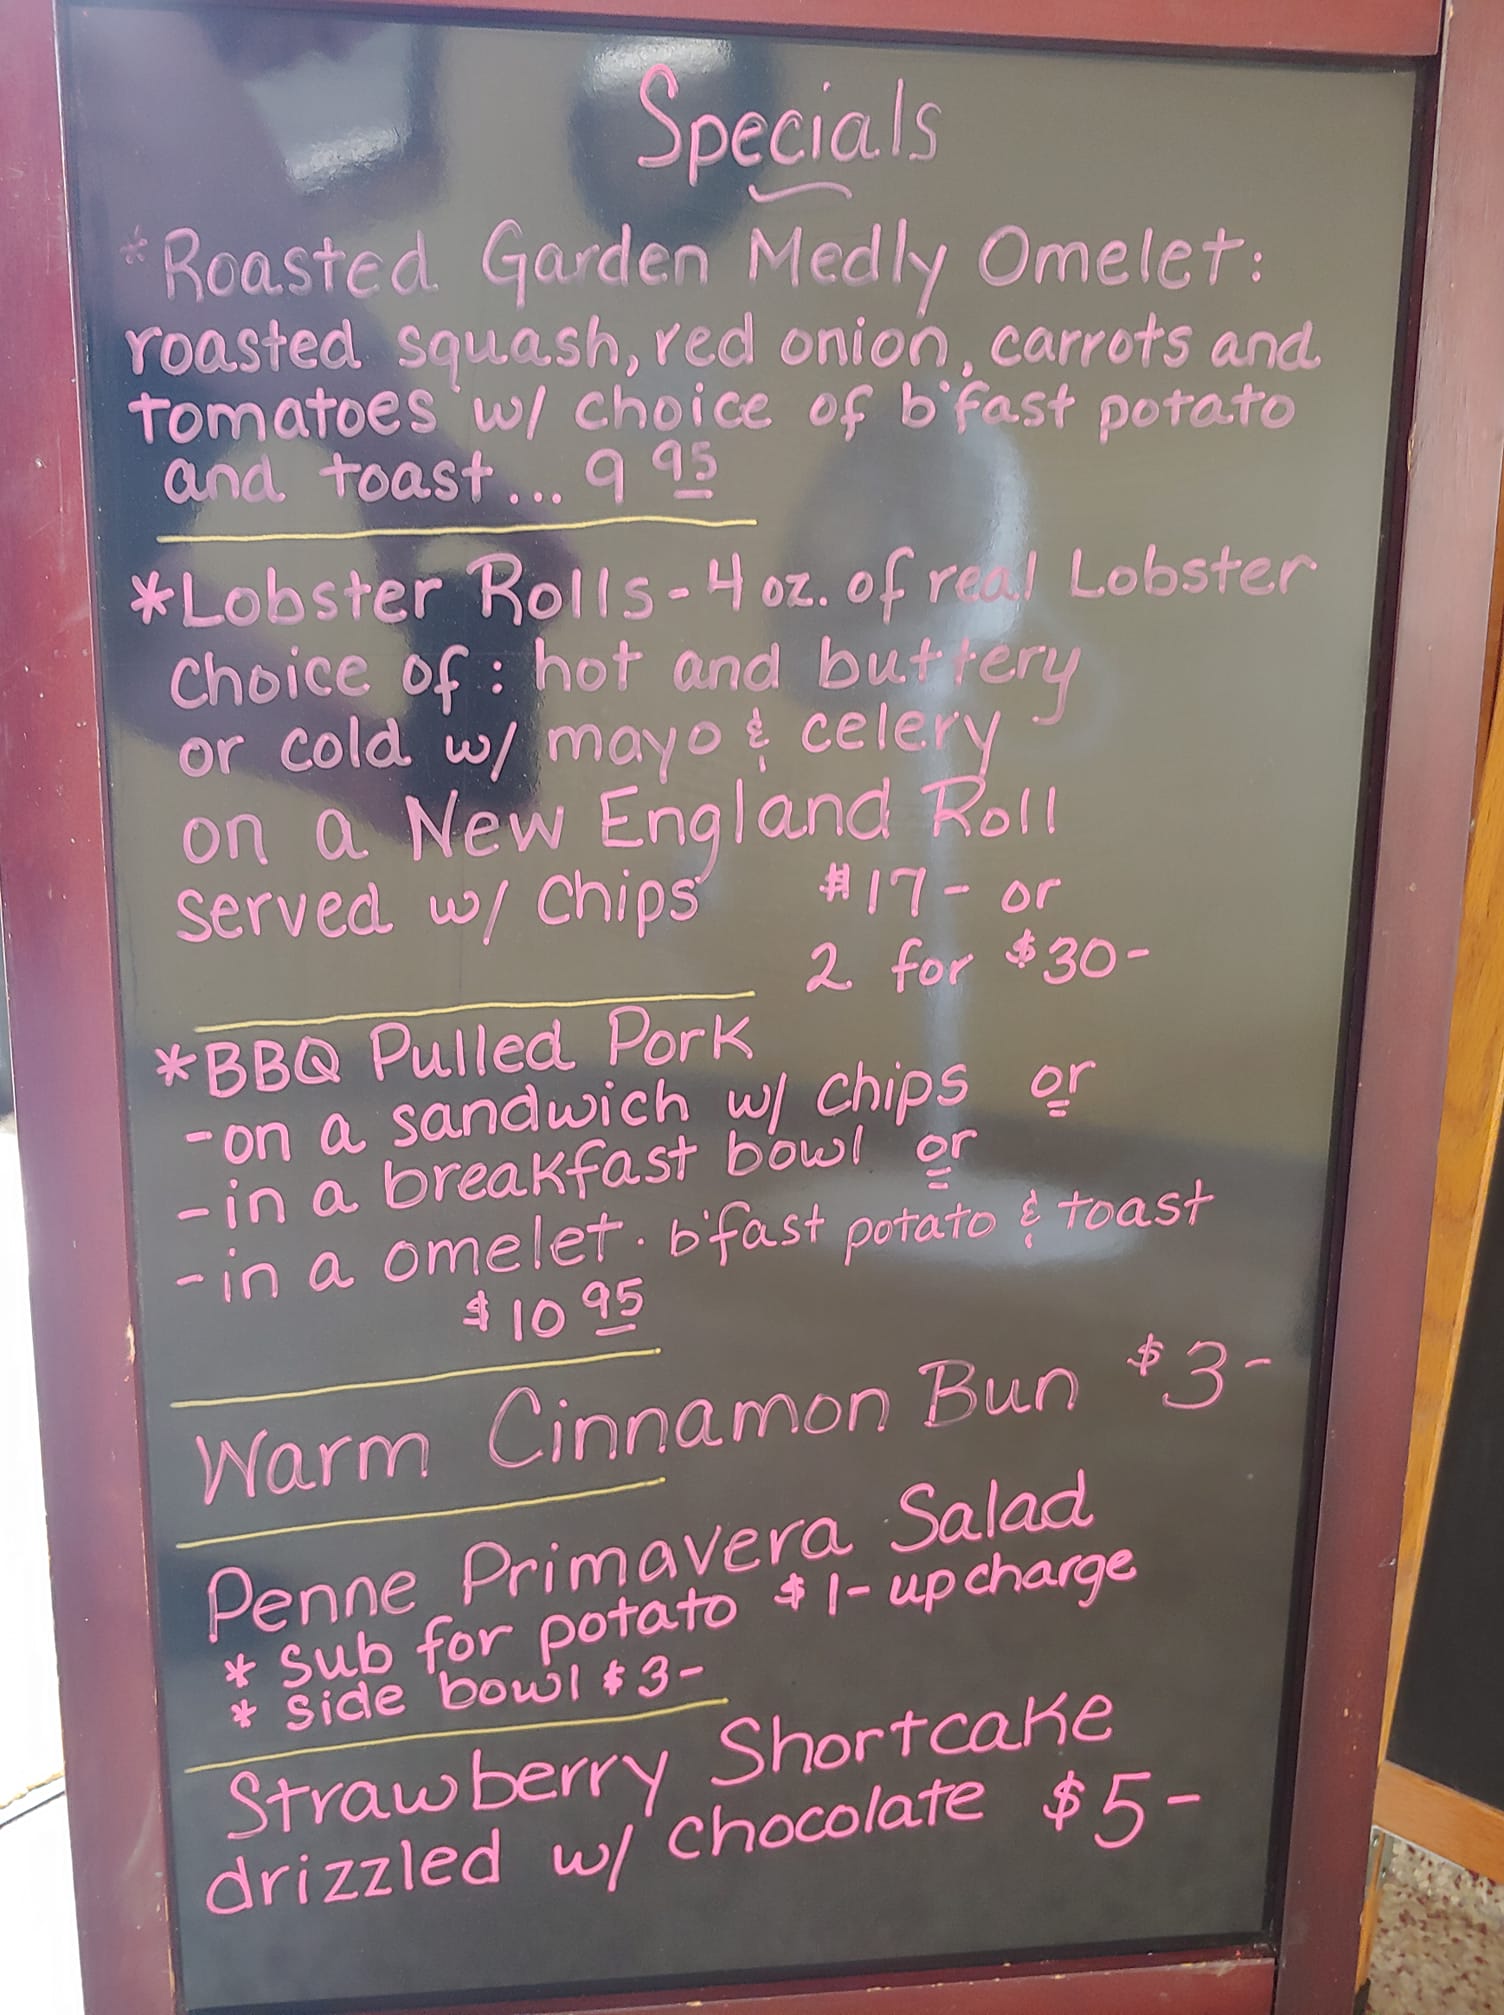 Specials
*Roasted Garden Medly Omelet:
roasted squash, red onion, carrots and
tomatoes w/ choice of b'fast potato
and toast... 9 95
*Lobster Rolls - 4 oz. of real Lobster
choice of: hot and buttery
or cold w/ mayo & celery
on a New England Roll
served w/ Chips $17- or
2 for $30-
*BBQ Pulled Pork
-on a sandwich w/ chips or
-in a breakfast bowl or
-in a omelet. b'fast potato & toast
$10 95
Warm Cinnamon Bun $3-
Penne Primavera Salad
* Sub for potato $1- upcharge
* Side bowl $3-
Strawberry Shortcake
drizzled w/ chocolate $5-